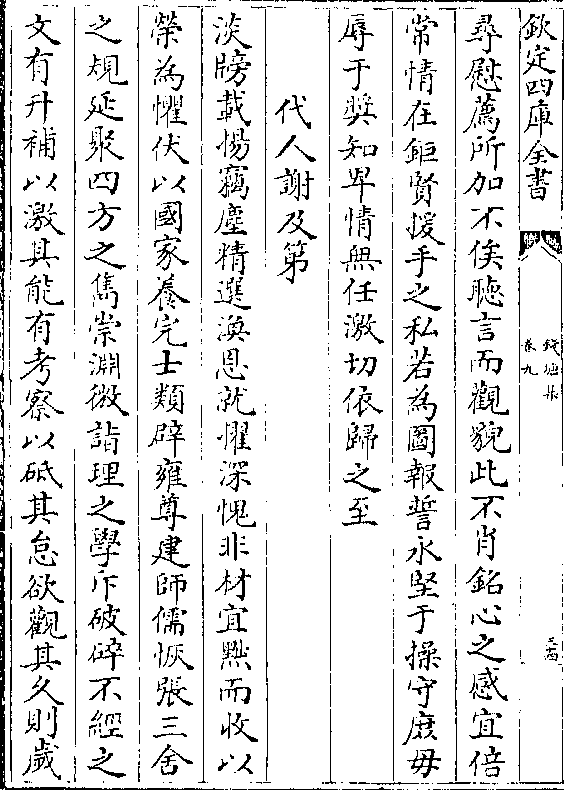 欽定四庫全書
錢塘集
卷九
尋慰薦所加不俟聽言而觀貌此不肖銘心之感宜倍
常情在鉅賢援手之私若為圖報誓永堅于操守庶毋
辱于奬知卑情無任激切依歸之至
代人謝及第
淡牓載揚竊塵精選渙恩就懼深愧非材宜黜而收以
榮為懼伏以國家養完士類辟雍尊建師儒恢張三舍
之規延聚四方之雋崇淵微詣理之學斥破碎不經之
文有升補以激其能有考察以砥其怠欲觀其久則歲